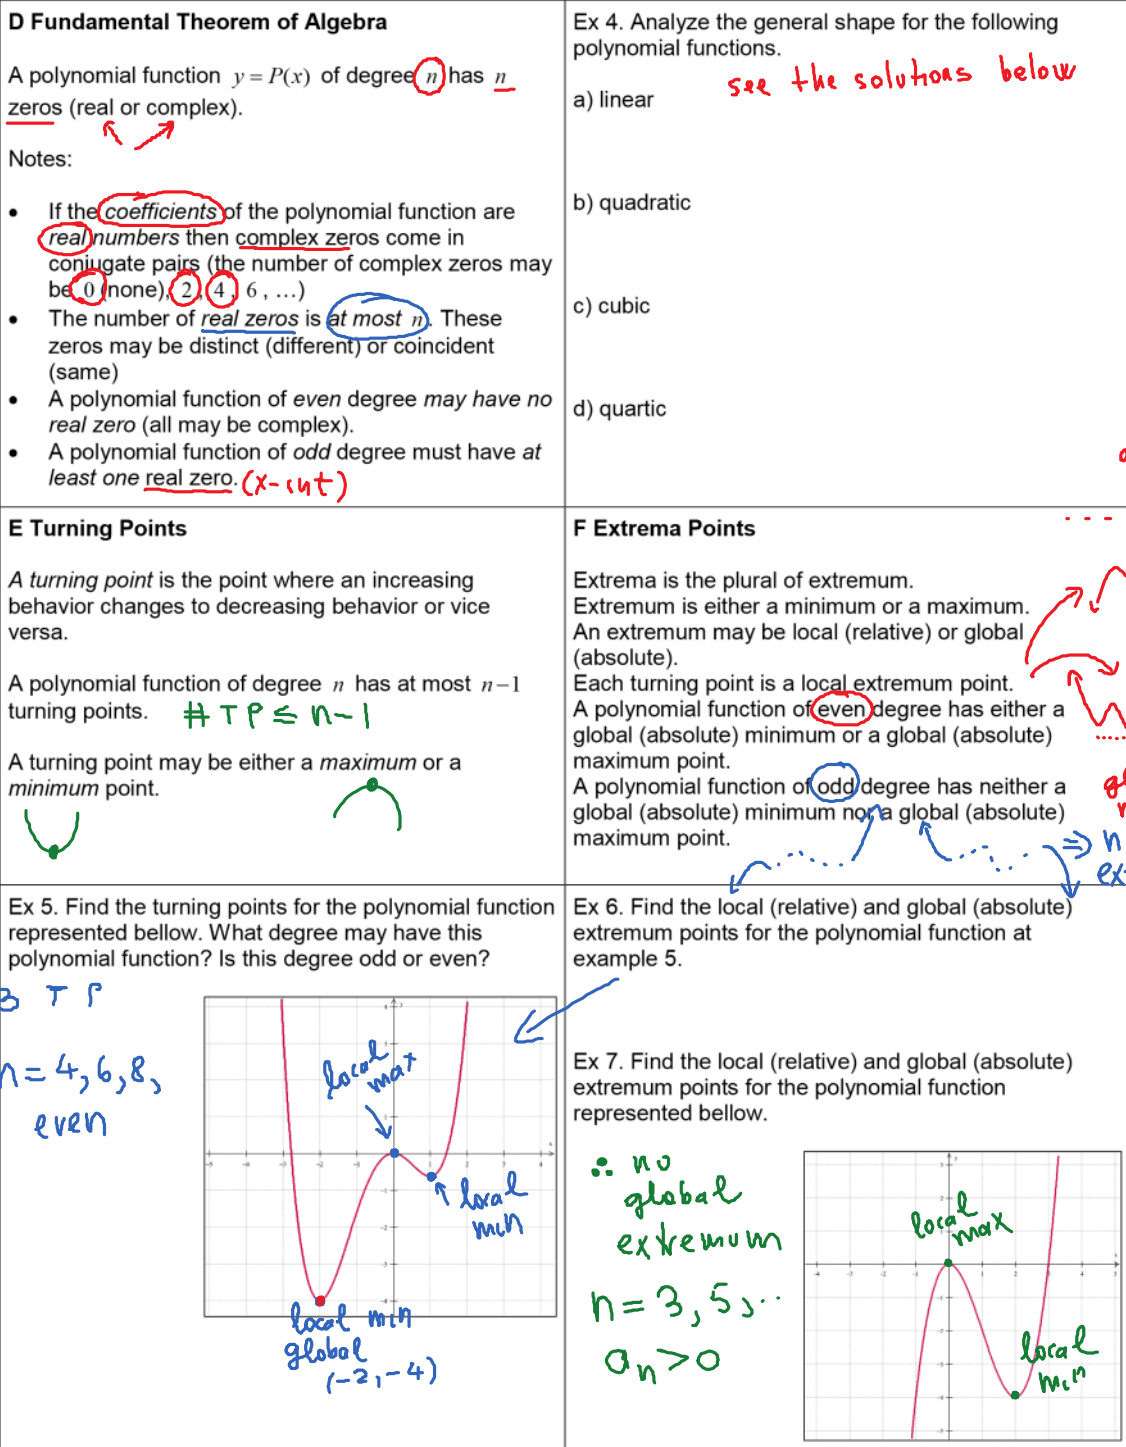 D Fundamental Theorem of Algebra
A polynomial function y = P(x) of degree n has n
zeros (real or complex).
Notes:
• If the coefficients of the polynomial function are
real numbers then complex zeros come in
conjugate pairs (the number of complex zeros may
be 0 (none), 2, 4, 6, …)
• The number of real zeros is at most n. These
zeros may be distinct (different) or coincident
(same)
• A polynomial function of even degree may have no
real zero (all may be complex).
• A polynomial function of odd degree must have at
least one real zero. (x-int)
Ex 4. Analyze the general shape for the following
polynomial functions.
see the solutions below
a) linear
b) quadratic
c) cubic
d) quartic
E Turning Points
A turning point is the point where an increasing
behavior changes to decreasing behavior or vice
versa.
A polynomial function of degree n has at most n−1
turning points. # TP ≤ n-1
A turning point may be either a maximum or a
minimum point.
F Extrema Points
Extrema is the plural of extremum.
Extremum is either a minimum or a maximum.
An extremum may be local (relative) or global
(absolute).
Each turning point is a local extremum point.
A polynomial function of even degree has either a
global (absolute) minimum or a global (absolute)
maximum point.
A polynomial function of odd degree has neither a
global (absolute) minimum nor a global (absolute)
maximum point.
⇒ n
ex
Ex 5. Find the turning points for the polynomial function
represented bellow. What degree may have this
polynomial function? Is this degree odd or even?
3 TP
n = 4, 6, 8,
even
local
max
local
min
local min
global
(-2, -4)
Ex 6. Find the local (relative) and global (absolute)
extremum points for the polynomial function at
example 5.
Ex 7. Find the local (relative) and global (absolute)
extremum points for the polynomial function
represented bellow.
∴ no
global
extremum
n = 3, 5, ..
an > 0
local
max
local
min